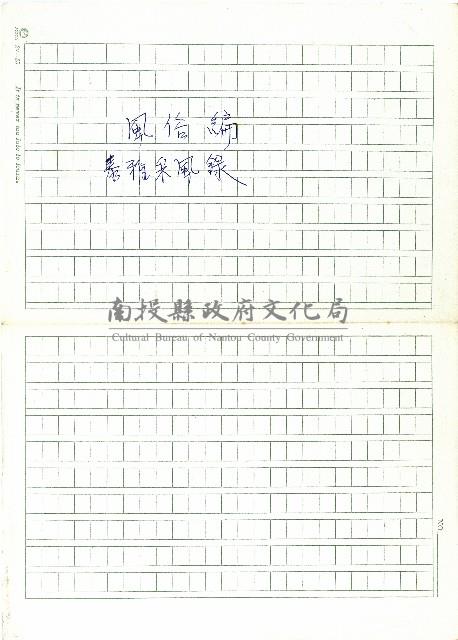 風俗編
泰雅采風錄
南投縣政府文化局
Cultural Bureau of Nantou County Government